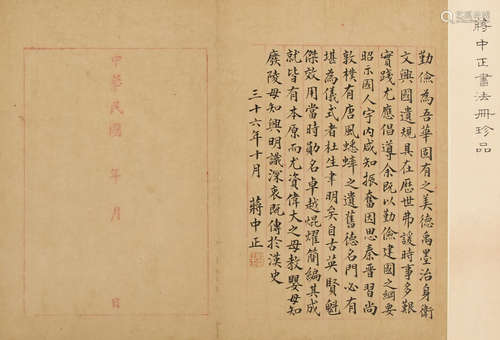 蔣中正書法冊珍品
勤儉為吾華固有之美德禹墨治身衛
文興國遺規具在歷世弗諼時事多艱
實踐尤應倡導余既以勤儉建國之綱要
昭示國人宇內咸知振奮因思秦晉習尚
敦樸有唐風蟋蟀之遺舊德名門必有
堪為儀式者杜生聿明矣自古英賢魁
傑效用當時勛名卓越焜耀簡編其成
就皆有本原而尤資偉大之母教嬰母知
廢陵母知興明識深衷既傳於漢史
三十六年十月 蔣中正
中華民國 年 月 日